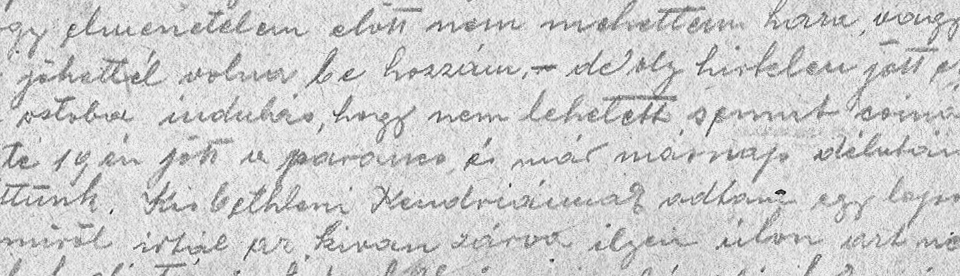 gy elmenetelem előtt nem mehettem haza, vagy
jöhettél volna be hozzám, – de oly hirtelen jött
ostoba indulás, hogy nem lehetett semmit csiná
te 19 én jött a parancs és már másnap délután
ttünk. Kis bethleni adtam egy lapo
miről irtál az kivan zárva ilyen úton azt